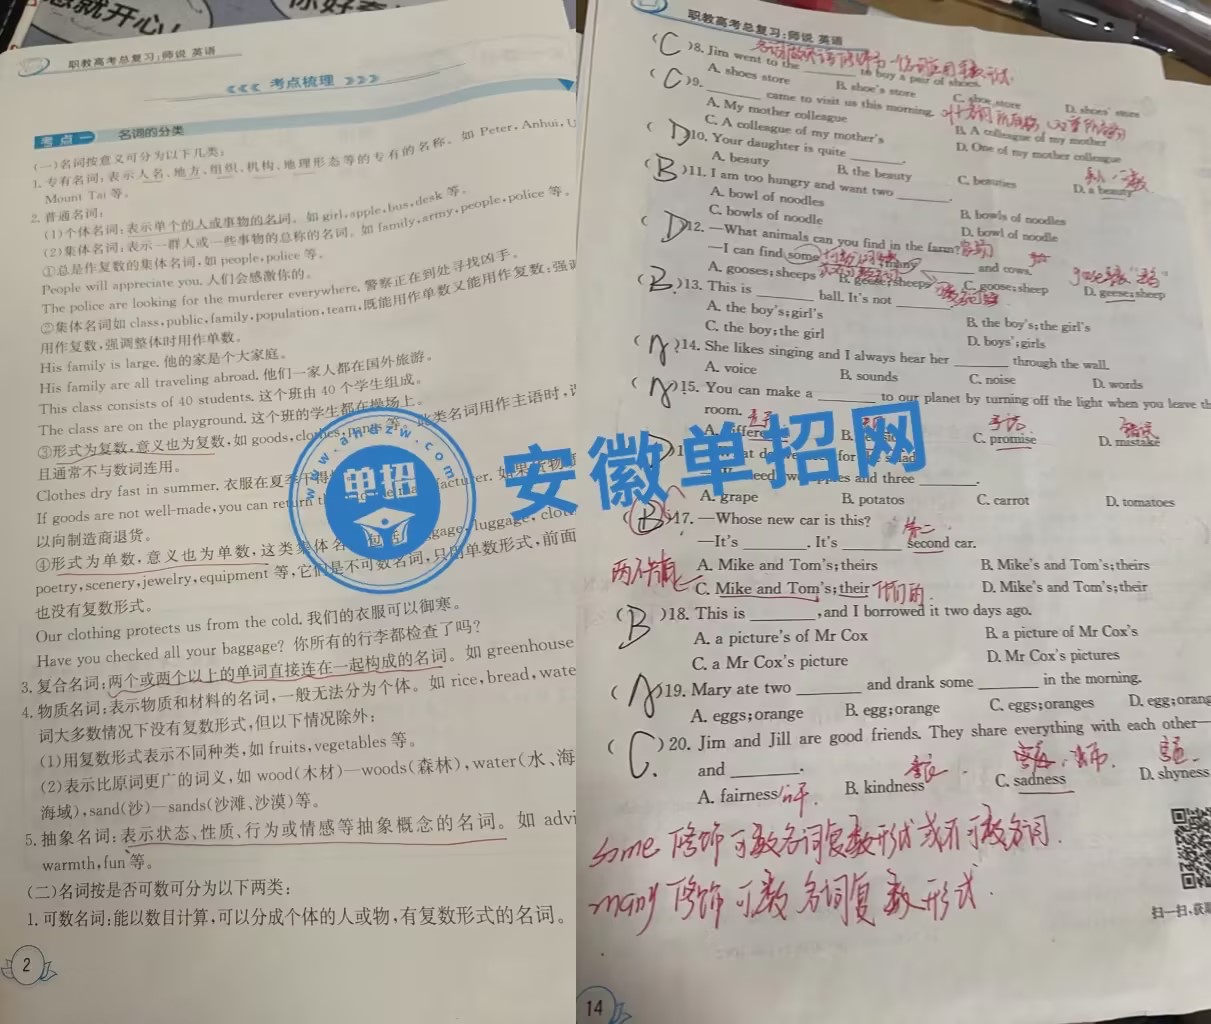 职教高考总复习:师说 英语
考点梳理
考点一 名词的分类
(一)名词按意义可分为以下几类:
1. 专有名词:表示人名、地方、组织、机构、地理形态等的专有的名称。如 Peter, Anhui, U
Mount Tai 等。
2. 普通名词:
(1)个体名词:表示单个的人或事物的名词。如 girl, apple, bus, desk 等。
(2)集体名词:表示一群人或一些事物的总称的名词。如 family, army, people, police 等。
①总是作复数的集体名词,如 people, police 等。
People will appreciate you. 人们会感激你的。
The police are looking for the murderer everywhere. 警察正在到处寻找凶手。
②集体名词如 class, public, family, population, team, 既能用作单数又能用作复数:强调
用作复数,强调整体时用作单数。
His family is large. 他的家是个大家庭。
His family are all traveling abroad. 他们一家人都在国外旅游。
This class consists of 40 students. 这个班由 40 个学生组成。
The class are on the playground. 这个班的学生都在操场上。
③形式为复数,意义也为复数,如 goods, clothes, pants 等。此类名词用作主语时,谓
且通常不与数词连用。
Clothes dry fast in summer. 衣服在夏季干得快
If goods are not well-made, you can return them to the manufacturer. 如果货物
以向制造商退货。
④形式为单数,意义也为单数,这类集体名词包括 baggage, luggage, cloth
poetry, scenery, jewelry, equipment 等,它们是不可数名词,只用单数形式,前面
也没有复数形式。
Our clothing protects us from the cold. 我们的衣服可以御寒。
Have you checked all your baggage? 你所有的行李都检查了吗?
3. 复合名词:两个或两个以上的单词直接连在一起构成的名词。如 greenhouse
4. 物质名词:表示物质和材料的名词,一般无法分为个体。如 rice, bread, wate
词大多数情况下没有复数形式,但以下情况除外:
(1)用复数形式表示不同种类,如 fruits, vegetables 等。
(2)表示比原词更广的词义,如 wood(木材)—woods(森林), water(水、海
海域), sand(沙)—sands(沙滩、沙漠)等。
5. 抽象名词:表示状态、性质、行为或情感等抽象概念的名词。如 advi
warmth, fun 等。
(二)名词按是否可数可分为以下两类:
1. 可数名词:能以数目计算,可以分成个体的人或物,有复数形式的名词。
2
职教高考总复习:师说 英语
( C )8. Jim went to the ______ to buy a pair of shoes.
A. shoes store B. shoe's store C. shoe store D. shoes' store
( C )9. ______ came to visit us this morning.
A. My mother colleague B. A colleague of my mother
C. A colleague of my mother's D. One of my mother colleague
( D )10. Your daughter is quite ______.
A. beauty B. the beauty C. beauties D. a beauty
( B )11. I am too hungry and want two ______.
A. bowl of noodles B. bowls of noodles
C. bowls of noodle D. bowl of noodle
( D )12. —What animals can you find in the farm?
—I can find some ______, many ______ and cows.
A. gooses; sheeps B. geese; sheeps C. goose; sheep D. geese; sheep
( B )13. This is ______ ball. It's not ______
A. the boy's; girl's B. the boy's; the girl's
C. the boy; the girl D. boys'; girls
( A )14. She likes singing and I always hear her ______ through the wall.
A. voice B. sounds C. noise D. words
( A )15. You can make a ______ to our planet by turning off the light when you leave th
room.
A. differen C. promise 承诺 D. mistake 错误
D
for
and three ______.
A. grape B. potatos C. carrot D. tomatoes
( B )17. —Whose new car is this?
—It's ______. It's ______ second car. 第二
A. Mike and Tom's; theirs B. Mike's and Tom's; theirs
C. Mike and Tom's; their 他们的 D. Mike's and Tom's; their
( B )18. This is ______, and I borrowed it two days ago.
A. a picture's of Mr Cox B. a picture of Mr Cox's
C. a Mr Cox's picture D. Mr Cox's pictures
( A )19. Mary ate two ______ and drank some ______ in the morning.
A. eggs; orange B. egg; orange C. eggs; oranges D. egg; orang
( C )20. Jim and Jill are good friends. They share everything with each other—
and ______.
A. fairness 公平 B. kindness C. sadness D. shyness
some 修饰可数名词复数形式或不可数名词.
many 修饰可数名词复数形式.
扫一扫,获取
14
www.ahdzw.com
单招
安徽单招网